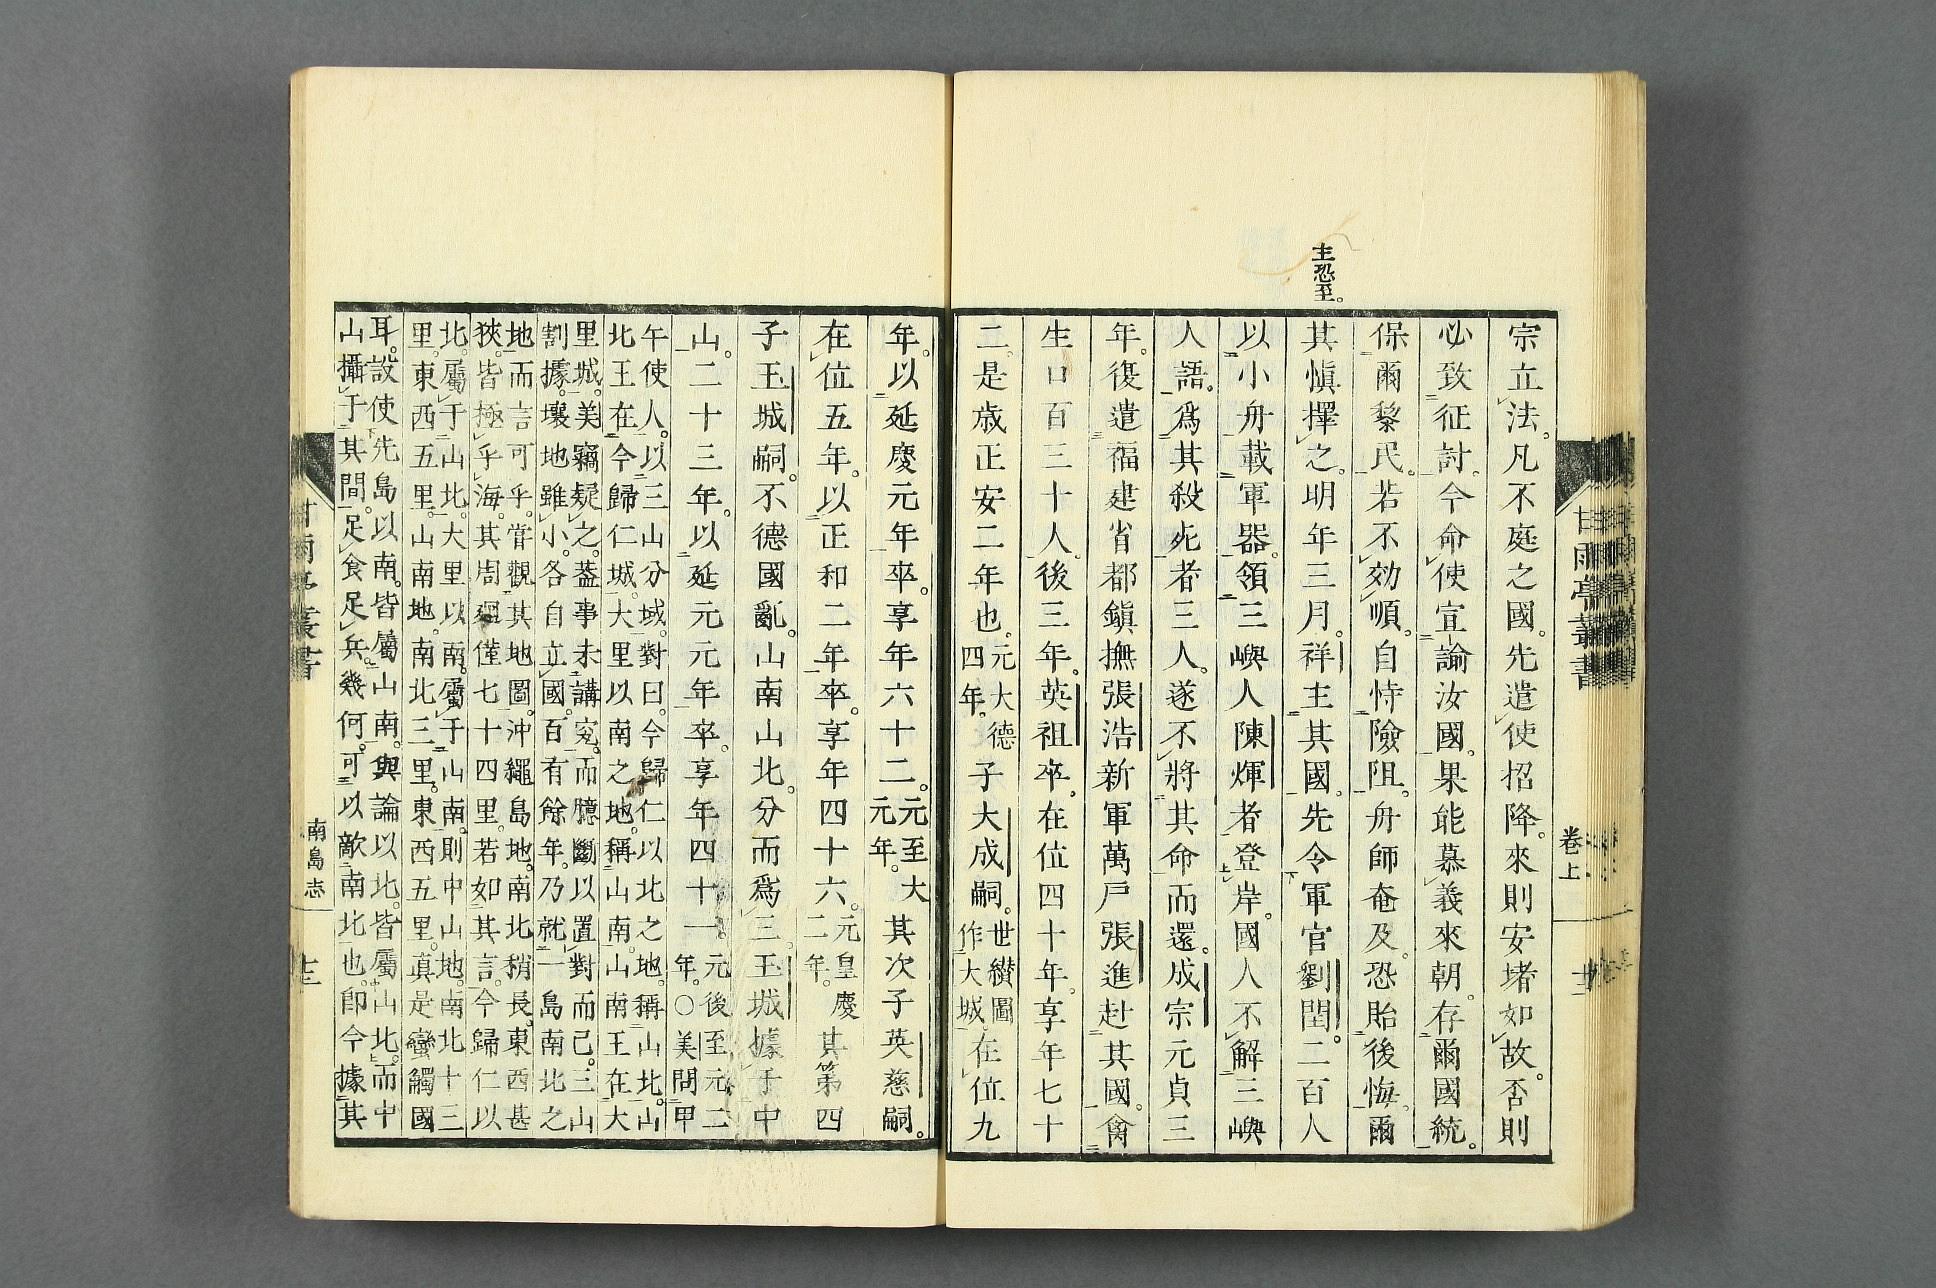 主恐至。
宗立法。凡不庭之國。先遣使招降。來則安堵如故。否則
必致征討。今命使宣諭汝國。果能慕義來朝。存爾國統。
保爾黎民。若不効順。自恃險阻。舟師奄及。恐貽後悔。爾
其愼擇之。明年三月。祥主其國。先令軍官劉閏。二百人
以小舟載軍器。領三嶼人陳煇者登岸。國人不解三嶼
人語。爲其殺死者三人。遂不將其命而還。成宗元貞三
年。復遣福建省都鎭撫張浩新軍萬戶張進赴其國。禽
生口百三十人。後三年。英祖卒。在位四十年。享年七十
二。是歲正安二年也。元大德四年。子大成嗣。世纉圖作大城。在位九
甘雨亭叢書
卷上
年。以延慶元年卒。享年六十二。元至大元年。其次子英慈嗣。
在位五年。以正和二年卒。享年四十六。元皇慶二年。其第四
子玉城嗣。不德國亂。山南山北。分而爲三。玉城據于中
山。二十三年。以延元元年卒。享年四十一。元後至元二年。〇美問甲
午使人。以三山分域。對曰。今歸仁以北之地。稱山北。山
北王在今歸仁城。大里以南之地。稱山南。山南王在大
里城。美竊疑之。葢事未講究。而臆斷以置對而已。三山
割據。壤地雖小。各自立國。百有餘年。乃就一島南北之
地而言可乎。甞觀其地圖。沖繩島地。南北稍長。東西甚
狹。皆極乎海。其周廻僅七十四里。若如其言。今歸仁以
北。屬于山北。大里以南。屬于山南。則中山地。南北十三
里。東西五里。山南地。南北三里。東西五里。眞是蠻觸國
耳。設使先島以南。皆屬山南。與論以北。皆屬山北。而中
山攝于其間。足食足兵。幾何。可以敵南北也。卽今據其
甘雨亭叢書
南島志
十三